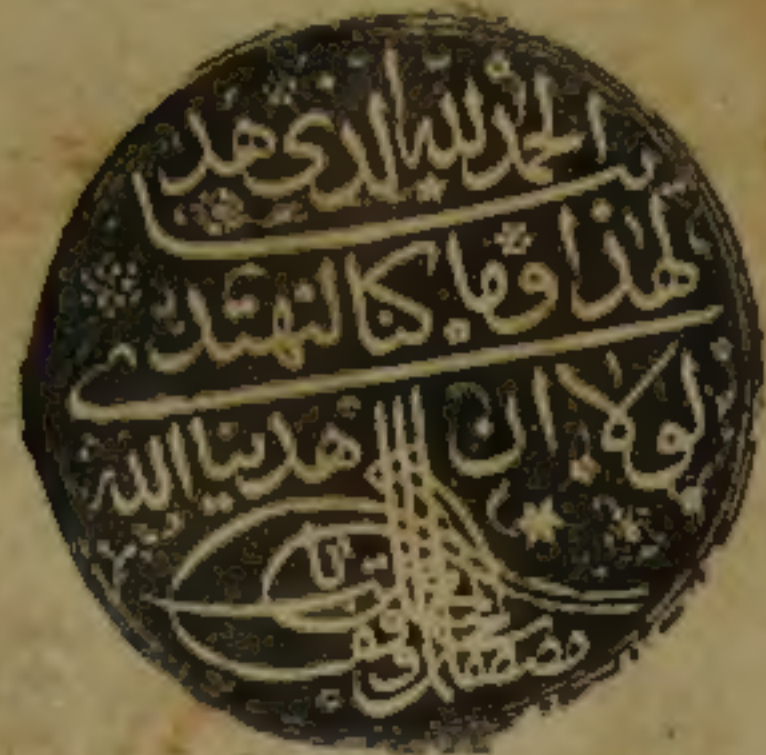 الحمد لله الذي هدينا
لهذا وما كنا لنهتدي
لولا ان هدينا الله